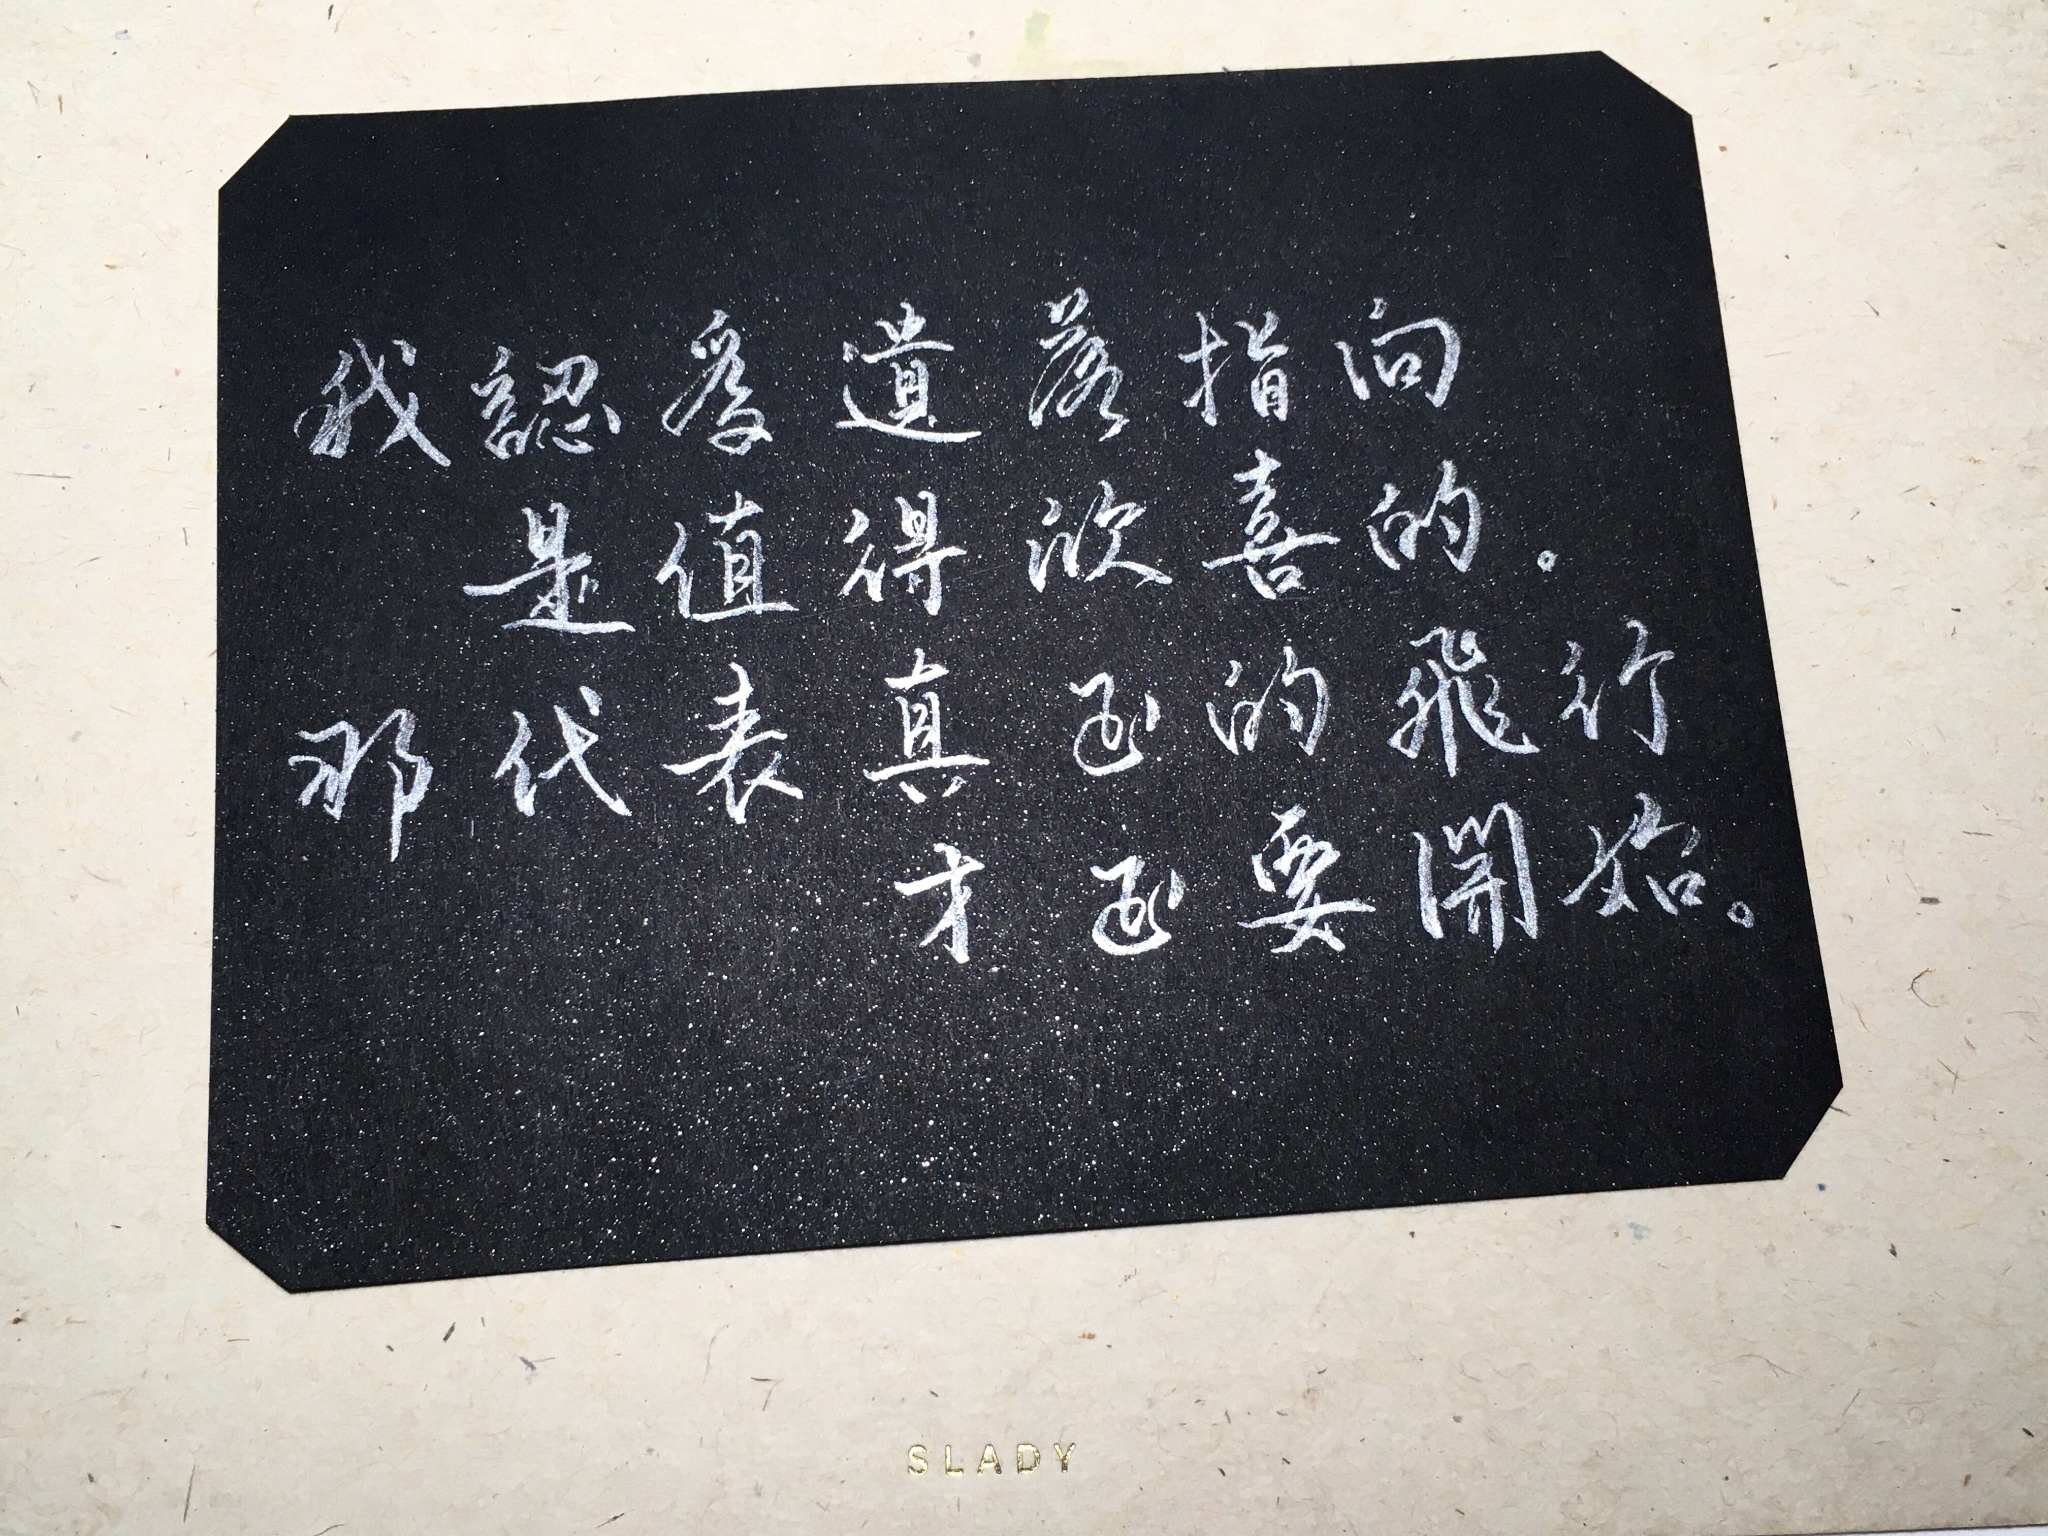 我認爲遺落指向
是值得欣喜的。
那代表真正的飛行
才正要開始。
SLADY